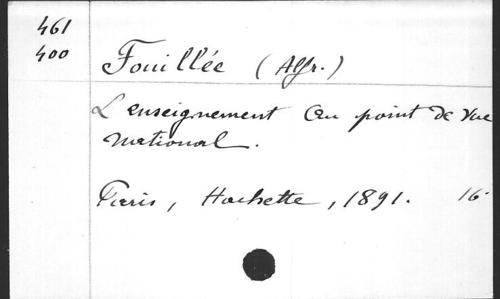 461
400
Fouillée (Alfr.)
L'enseignement au point de vue
national.
Paris, Hachette, 1891. 16°